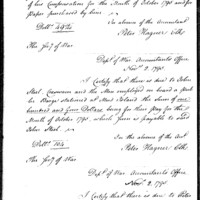 of his Compensation for the Month of October 1795 and for
Paper purchased by him
In absence of the Accountant
Peter Hagner Clk
The Secy of War
Dept of War Accountants Office
Novr 2, 1795
I Certify that there is due to John
Stiel and the Men employed on board a
Barge stationed at the Sum of one
hundred and four Dollars being for their Pay for the
Month of October 1795, which Sum is payable to said
John Stiel
In the absence of the Act
Peter Hagner Clk
The Secy of War
Dept of War Accountants Office
Novr 2, 1795
I Certify that there is due to Peter